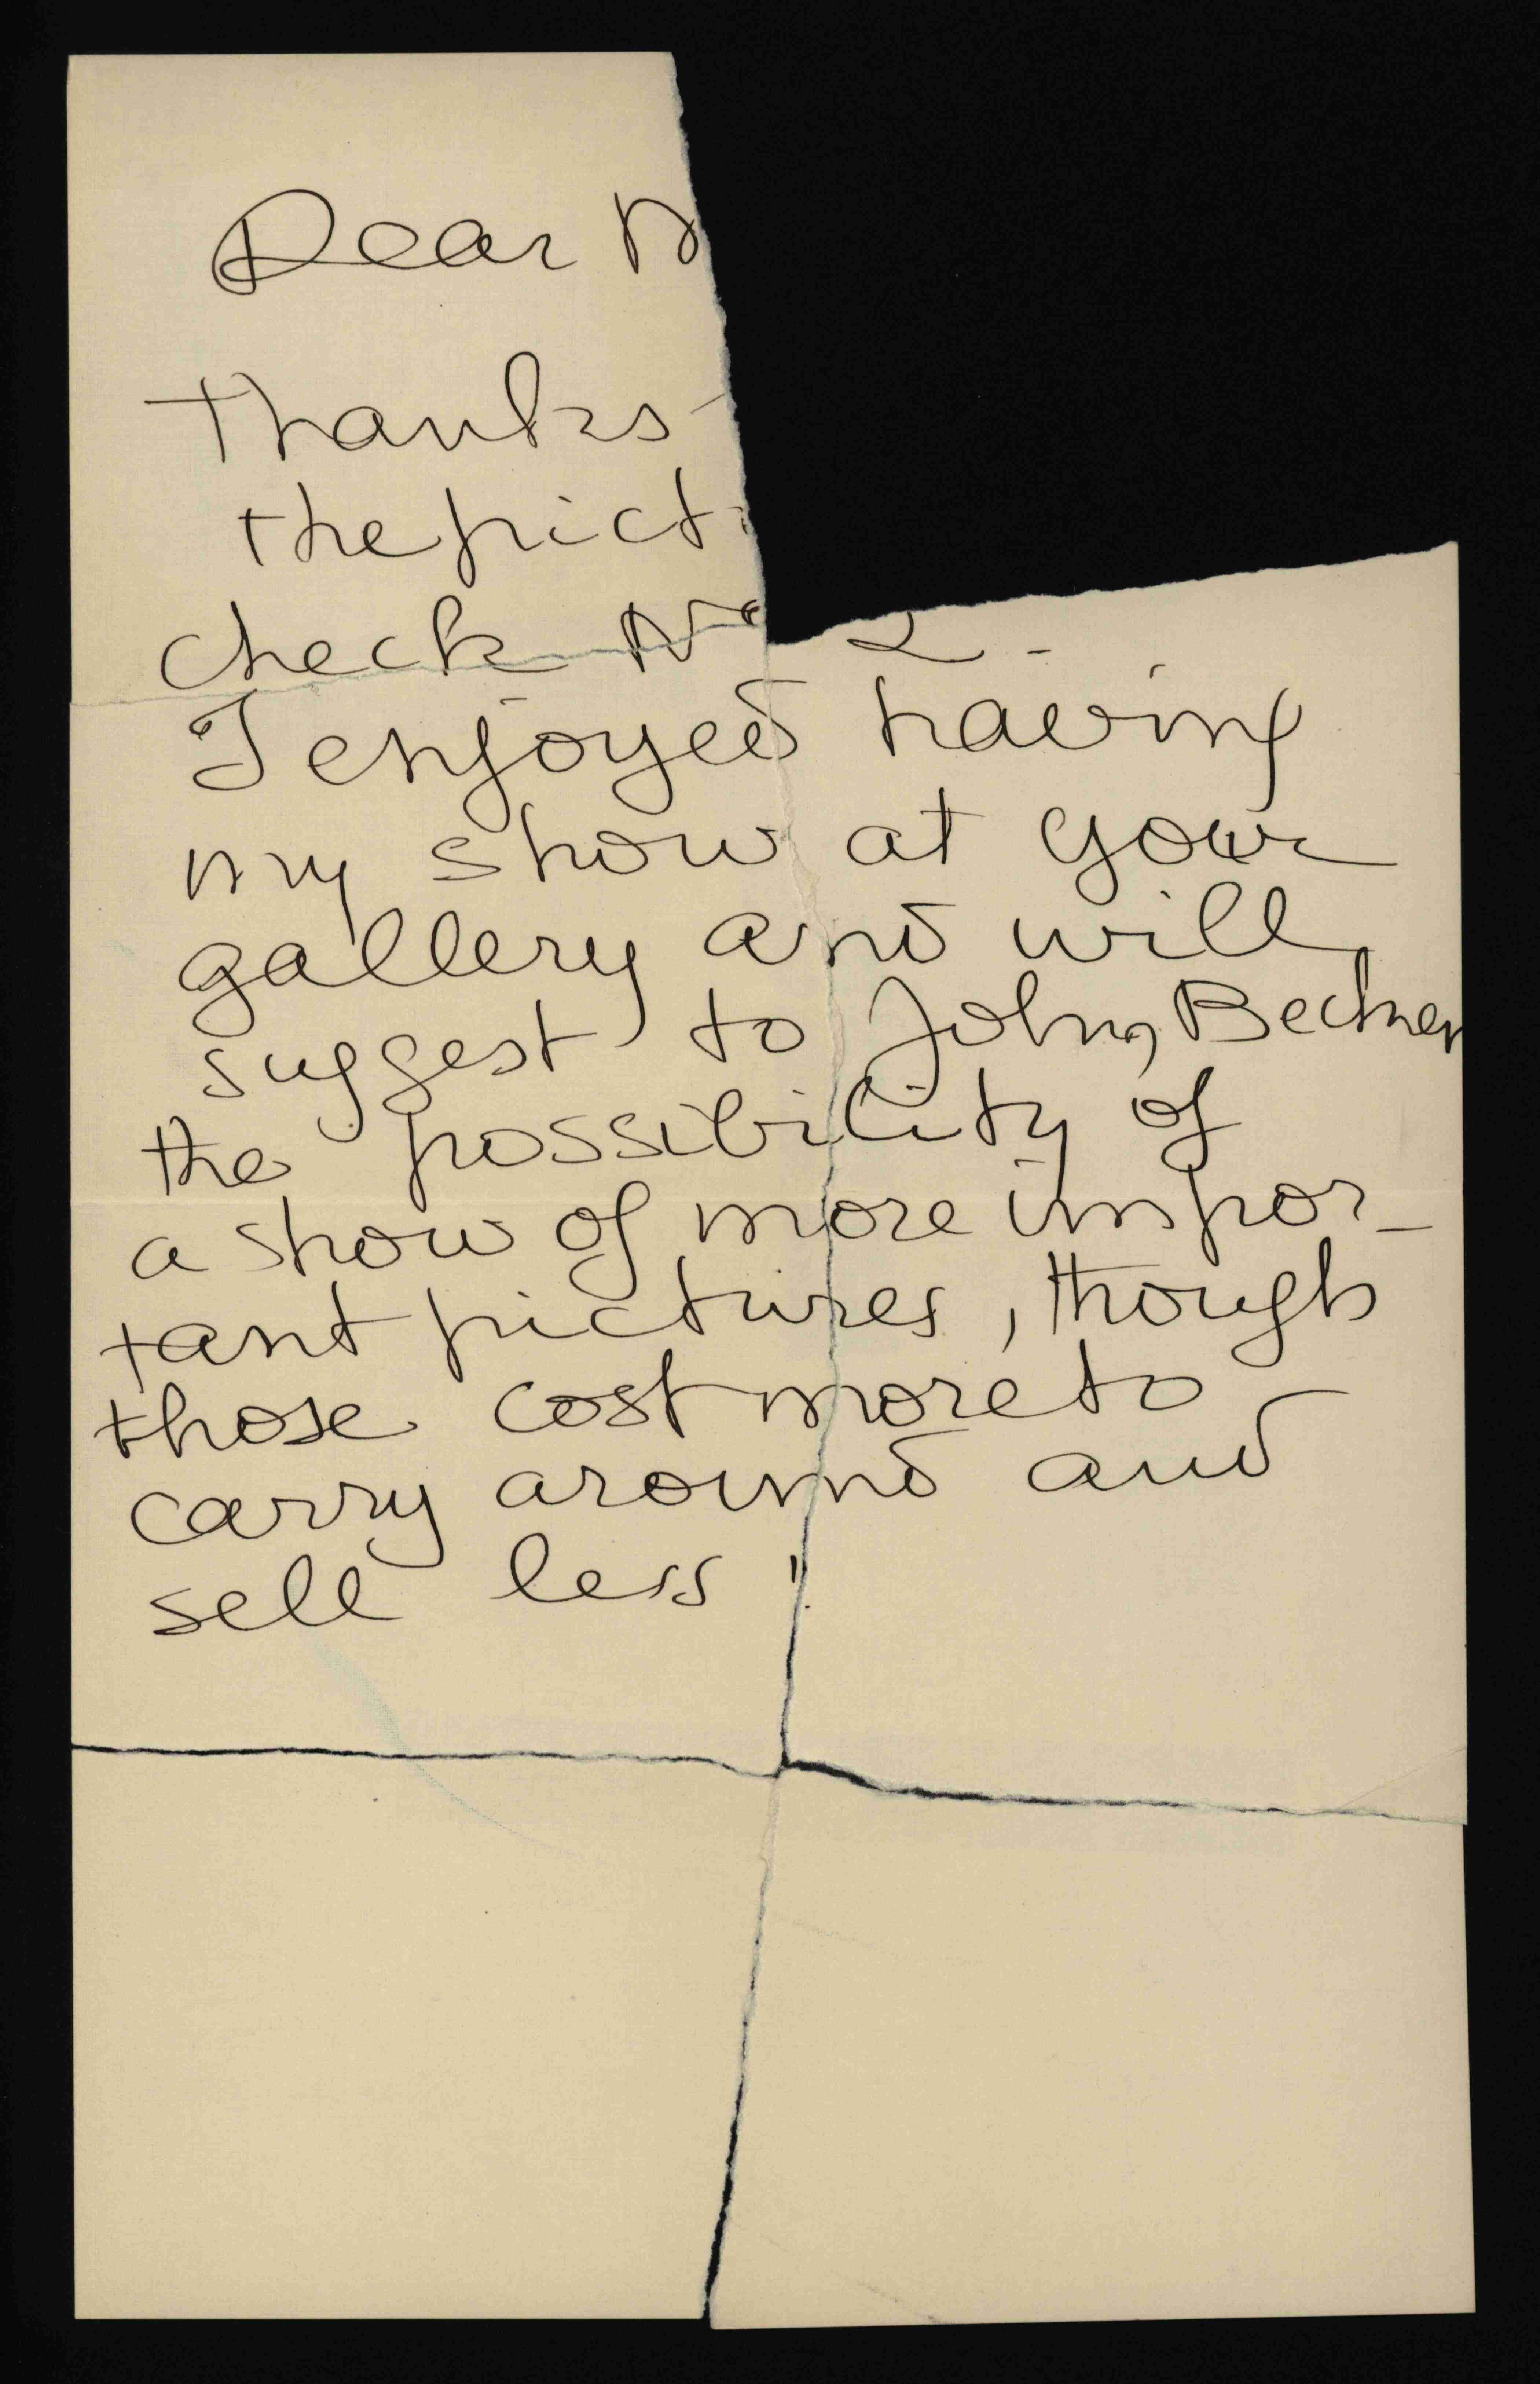 Dear M
Thanks
the pict
check No 2 -
I enjoyed having
my show at your
gallery and will
suggest to John Becker
the possibility of
a show of more impor-
tant pictures, though
those cost more to
carry around and
sell less!